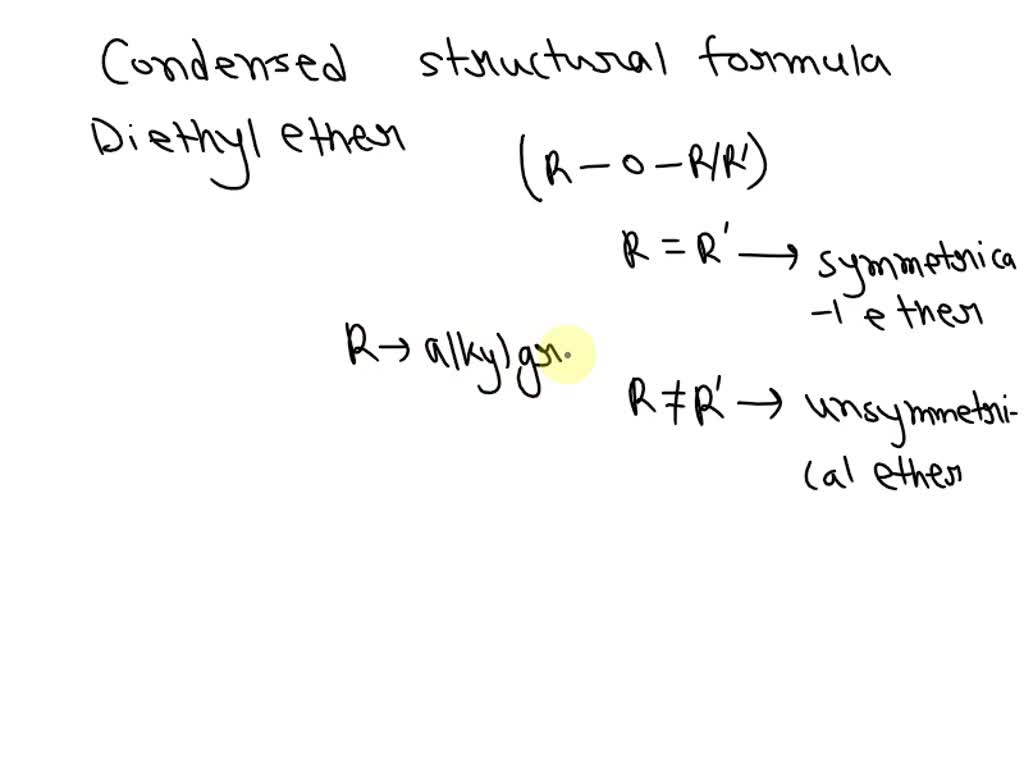 Condensed structural formula
Diethyl ether
(R - O - R/R')
R = R' → symmetrica
-l ether
R → alkyl gr.
R ≠ R' → unsymmetri-
cal ether